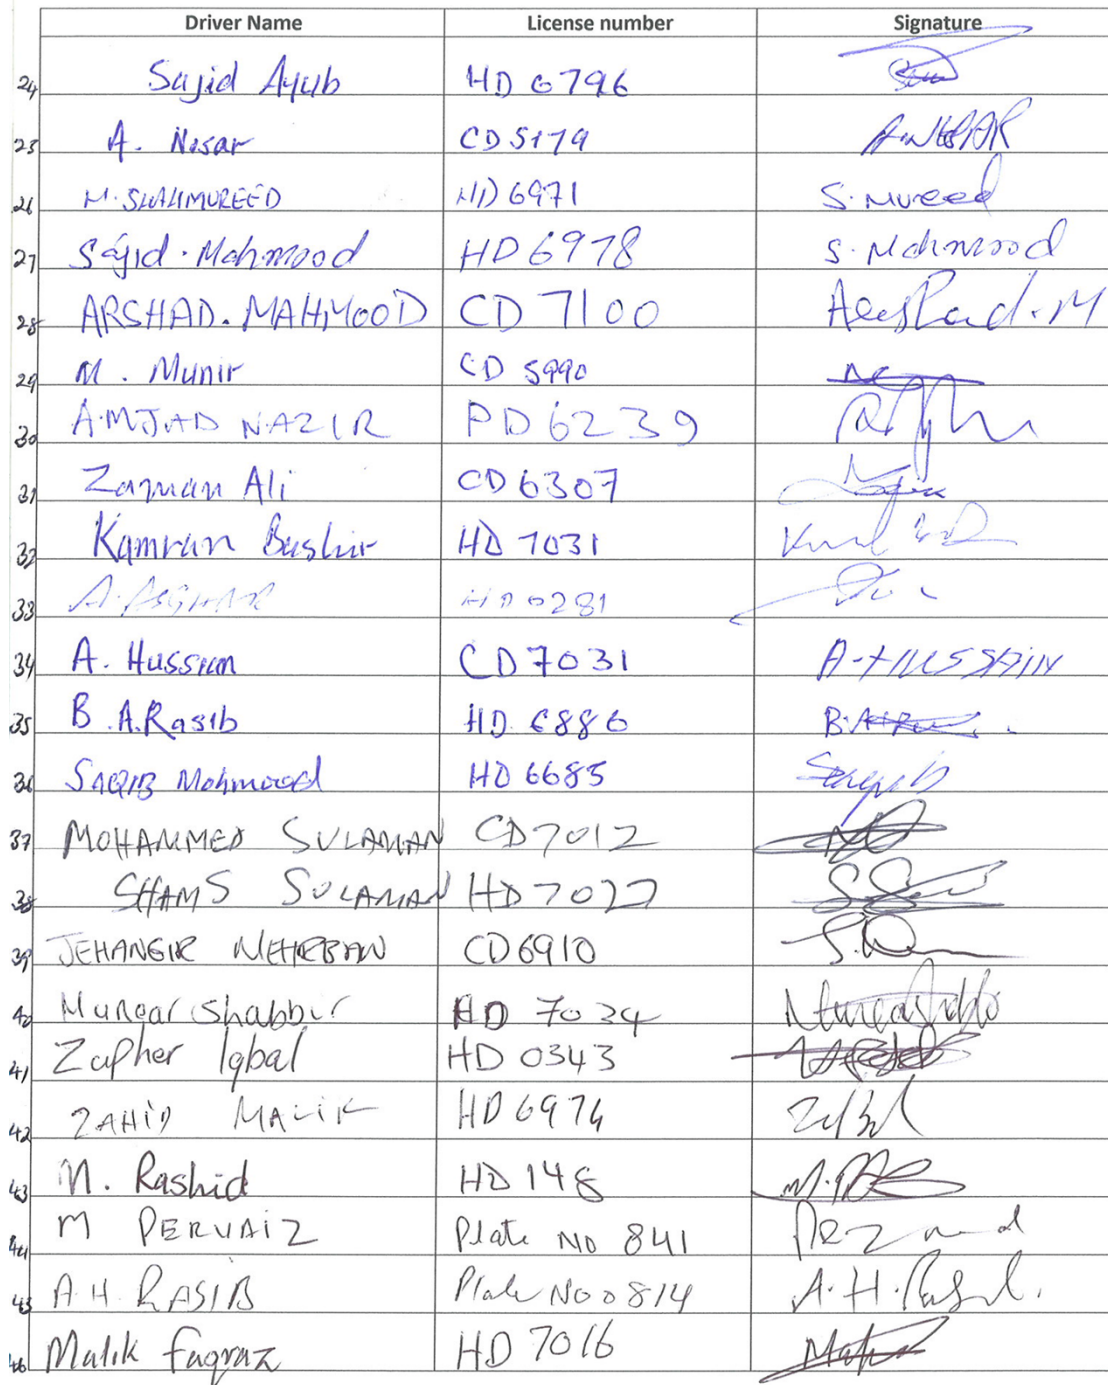 Driver Name License number Signature
24 Sajid Ayub HD 6796
25 A. Nosar CD 5179 A-NOSAR
26 M. SHAHMUREED HD 6971 S. Mureed
27 Sajid. Mahmood HD 6978 S. Mahmood
28 ARSHAD. MAHMOOD CD 7100 Aarshad. M
29 M. Munir CD 5990
30 A.MJAD NAZIR PD 6239
31 Zaman Ali CD 6307
32 Kamran Bashir HD 7031
33 A. ASGHAR HD 0281
34 A. Hussian CD 7031 A-HUSSAIN
35 B. A. Rasib HD. 6886
36 SAQIB Mahmood HD 6685 Saqib
37 MOHAMMED SULAMAN CD 7012
38 SHAMS SULAMAN HD 7027
39 JEHANGIR MEHRBAN CD 6910
40 Munsar Shabbir HD 7034
41 Zapher Iqbal HD 0343
42 ZAHID MALIK HD 6974
43 M. Rashid HD 148
44 M PERVAIZ Plate NO 841
45 A.H. RASIB Plate No 0814 A.H. Rasib.
46 Malik Faqraz HD 7016